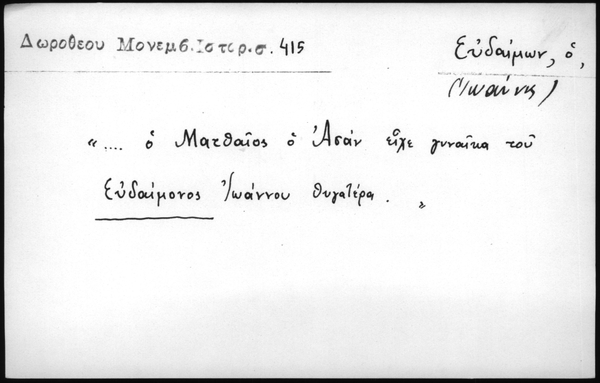 Δωροθεου Μονεμβ.Ιστορ.σ. 415
Εὐδαίμων, ὁ,
(Ἰωάννης)
".... ὁ Ματθαῖος ὁ Ἀσάν εἶχε γυναῖκα τοῦ
Εὐδαίμονος Ἰωάννου θυγατέρα. "